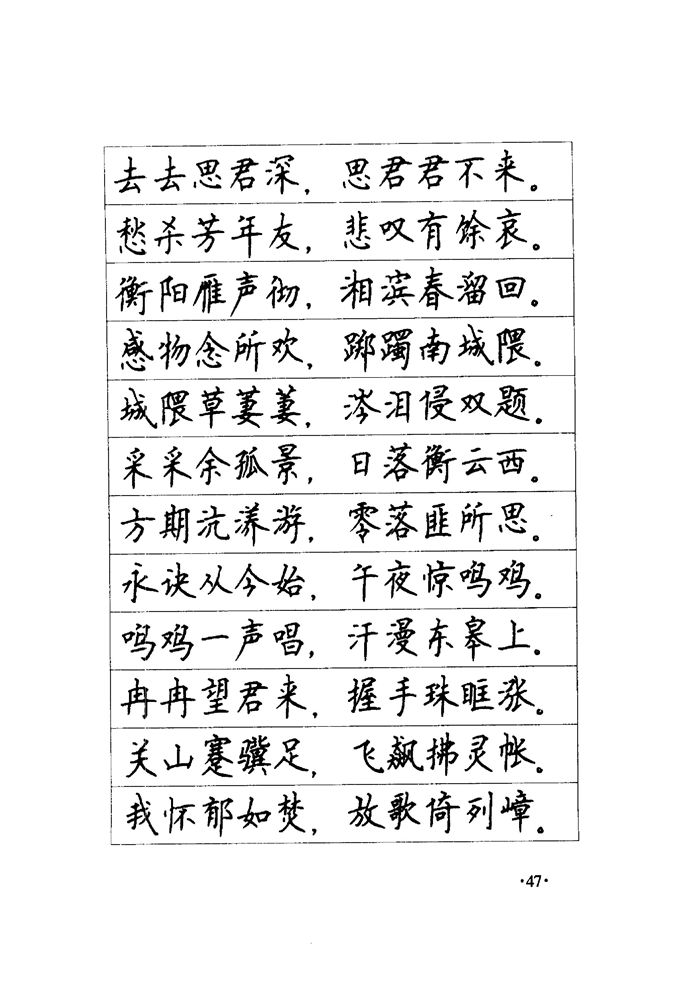 去去思君深，思君君不来。
愁杀芳年友，悲叹有馀哀。
衡阳雁声彻，湘滨春溜回。
感物念所欢，踯躅南城隈。
城隈草萋萋，涔泪侵双题。
采采余孤景，日落衡云西。
方期沆漭游，零落匪所思。
永诀从今始，午夜惊鸣鸡。
鸣鸡一声唱，汗漫东皋上。
冉冉望君来，握手珠眶涨。
关山蹇骥足，飞飙拂灵帐。
我怀郁如焚，放歌倚列嶂。
·47·